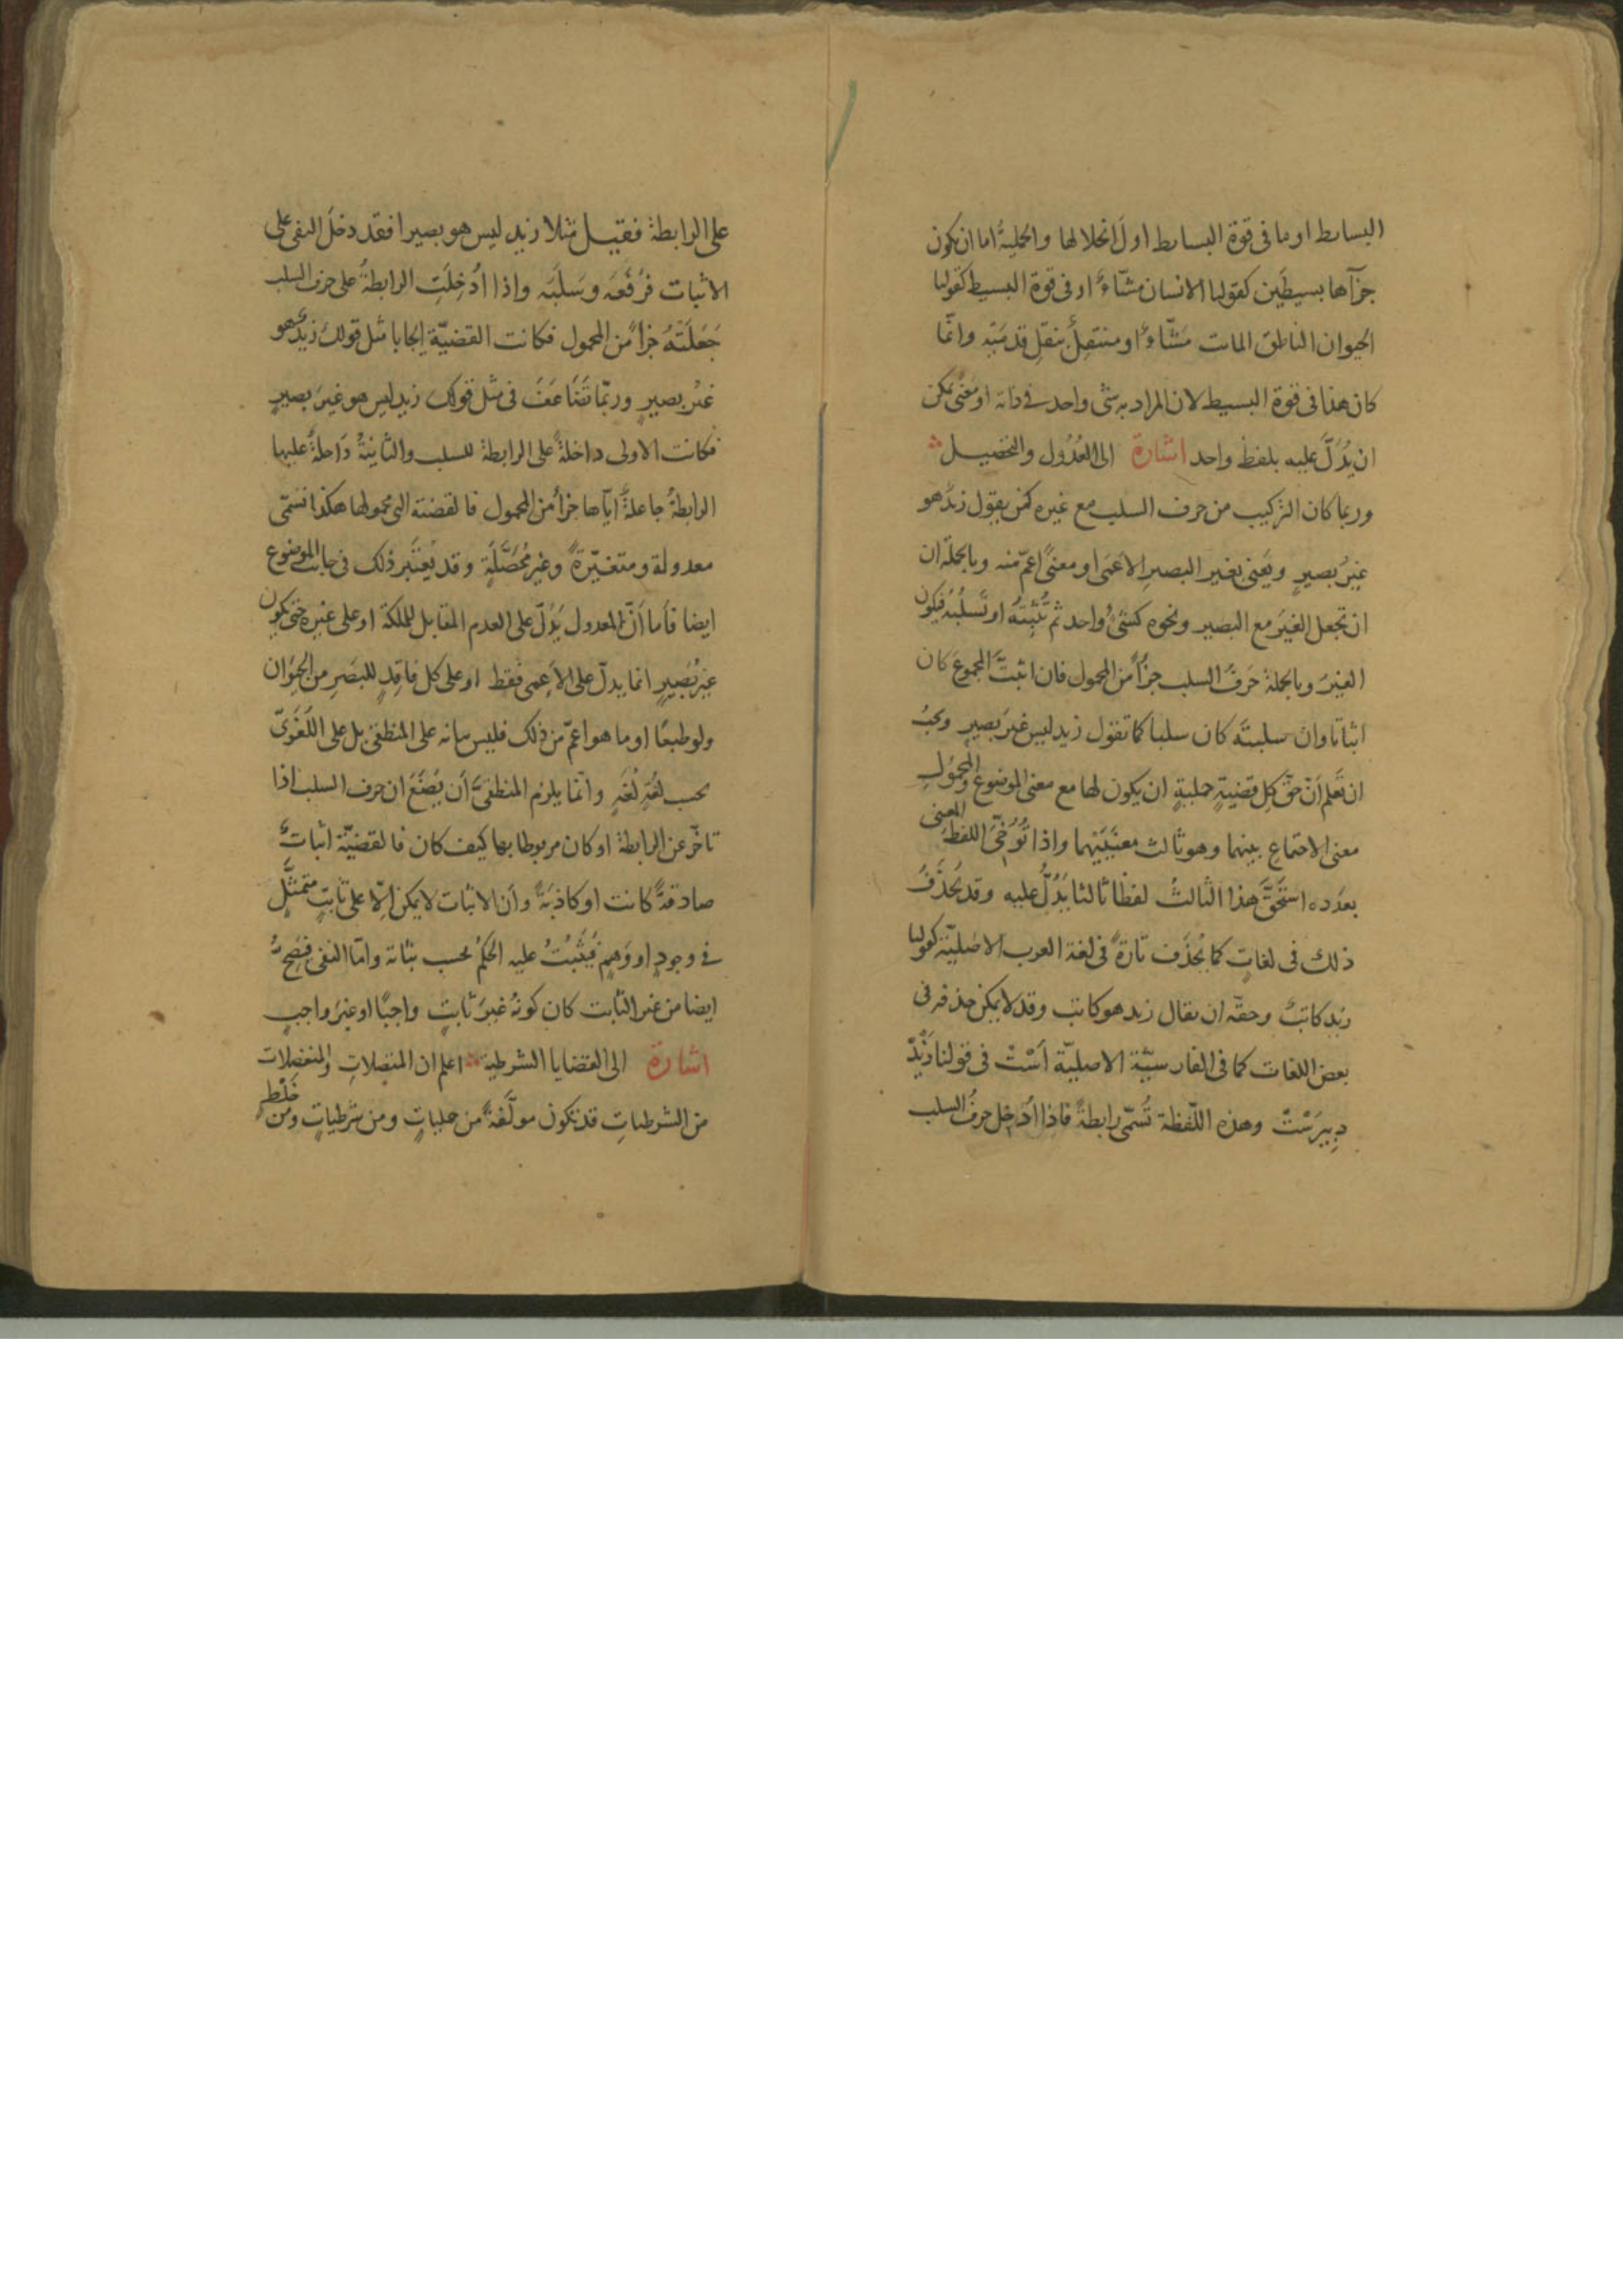 البسائط او ما فى قوة البسائط اول انحلالها والحملية اما ان يكون
جزآها بسيطين كقولنا الانسان مشّاء او فى قوة البسيط كقولنا
الحيوان الناطق المائت مشّاء او منتقل بنقل قدميه وانما
كان هذا فى قوة البسيط لان المراد به شئ واحد فى ذاته او معنى يمكن
ان يُدَلّ عليه بلفظ واحد اشارة الى العُدُول والتحصيل
وربما كان التركيب من حرف السلب مع غيره كمن يقول زيد هو
غيرُ بصيرٍ ويَعنى بغير البصير الاعمى او معنىً اعمّ منه وبالجملة ان
ان تجعل الغيرَ مع البصير ونحوه كشئٍ واحد ثم تُثْبِتَه او تَسلُبَه فيكون
الغير وبالجملة حرفُ السلب جزأً من المحمول فان اثبتَّ المجموع كان
اثباتا وان سلبتَه كان سلبا كما تقول زيد ليس غيرَ بصيرٍ ويجبُ
ان تَعلم اَنّ حقَّ كل قضيةٍ حمليةٍ ان يكون لها مع معنى الموضوع والمحمولِ
معنى الاجتماع بينهما وهو ثالث معنَيَيْهما واذا تُوُخِّىَ اللفظُ المعنى
بعدده استحَقَّ هذا الثالثُ لفظا ثالثا يَدُلُّ عليه وقد يُحذَفُ
ذلك فى لغاتٍ كما يُحذَف تارةً فى لغة العرب الاصليّة كقولنا
زيد كاتبٌ وحقّه ان يقال زيد هو كاتب وقد لا يمكن حذفه فى
بعض اللغات كما فى الفارسيّة الاصليّة اَسْتْ فى قولنا زَيْدْ
دِبِيرَسْتْ وهذه اللّفظة تُسَمّى رابطةً فاذا اُدخِل حرفُ السلب
على الرابطة فقيل مثلا زيد ليس هو بصيرا فقد دخَلَ النفى على
الاثبات فرَفَعَه وسَلَبَه واذا اُدْخِلَتِ الرابطةُ على حرف السلب
جَعَلَتْهُ جزأً من المحمول فكانت القضيّة ايجابا مثل قولك زيدٌ هو
غيرُ بصيرٍ وربّما تَضَاعَفَ فى مثل قولك زيد ليس هو غيرَ بصيرٍ
فكانت الاولى داخلةً على الرابطة للسلب والثانيةُ داخلةً عليها
الرابطةُ جاعلةً ايّاها جزأً من المحمول فالقضيّة التى محمولها هكذا تسمّى
معدولة ومتغيّرةً وغير مُحَصَّلَةٍ وقد يُعتَبر ذلك فى جانب الموضوع
ايضا فأما اَنَّ المعدول يَدُلّ على العدم المقابل للملكة او على غيره حتى يكون
غيرُ بَصيرٍ انما يدلّ على الاَعمى فقط او على كل فاقدٍ للبَصَرِ من الحيوان
ولو طبعًا او ما هو اعمّ من ذلك فليس بيانه على المنطقىّ بل على اللُّغَوِىّ
بحسب لُغَةٍ لُغَةٍ وانّما يلزم المنطقىَّ اَن يَضَعَ ان حرف السلب اذا
تاخّر عن الرابطة او كان مربوطا بها كيف كان فالقضيّة اثباتٌ
صادقةً كانت او كاذبةً واَن الاثبات لا يمكن الّا على ثابتٍ متمثَّلٍ
فى وجودٍ او وَهمٍ فيُثْبَتُ عليه الحكمُ بحسب ثباته وامّا النفى فيَصِحُّ
ايضا من غير الثابت كان كونُهُ غيرَ ثابتٍ واجبًا او غيرَ واجبٍ
اشارة الى القضايا الشرطية اعلم ان المتصلاتِ والمنفصلات
من الشرطياتِ قد تكون مولَّفةً من حملياتٍ ومن شرطياتٍ ومن خَلْطٍ